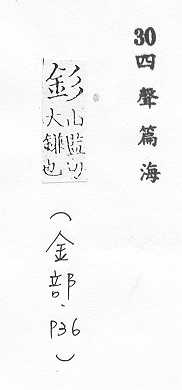 30 四聲篇海
釤
山監切
大 也
（金部．P36）